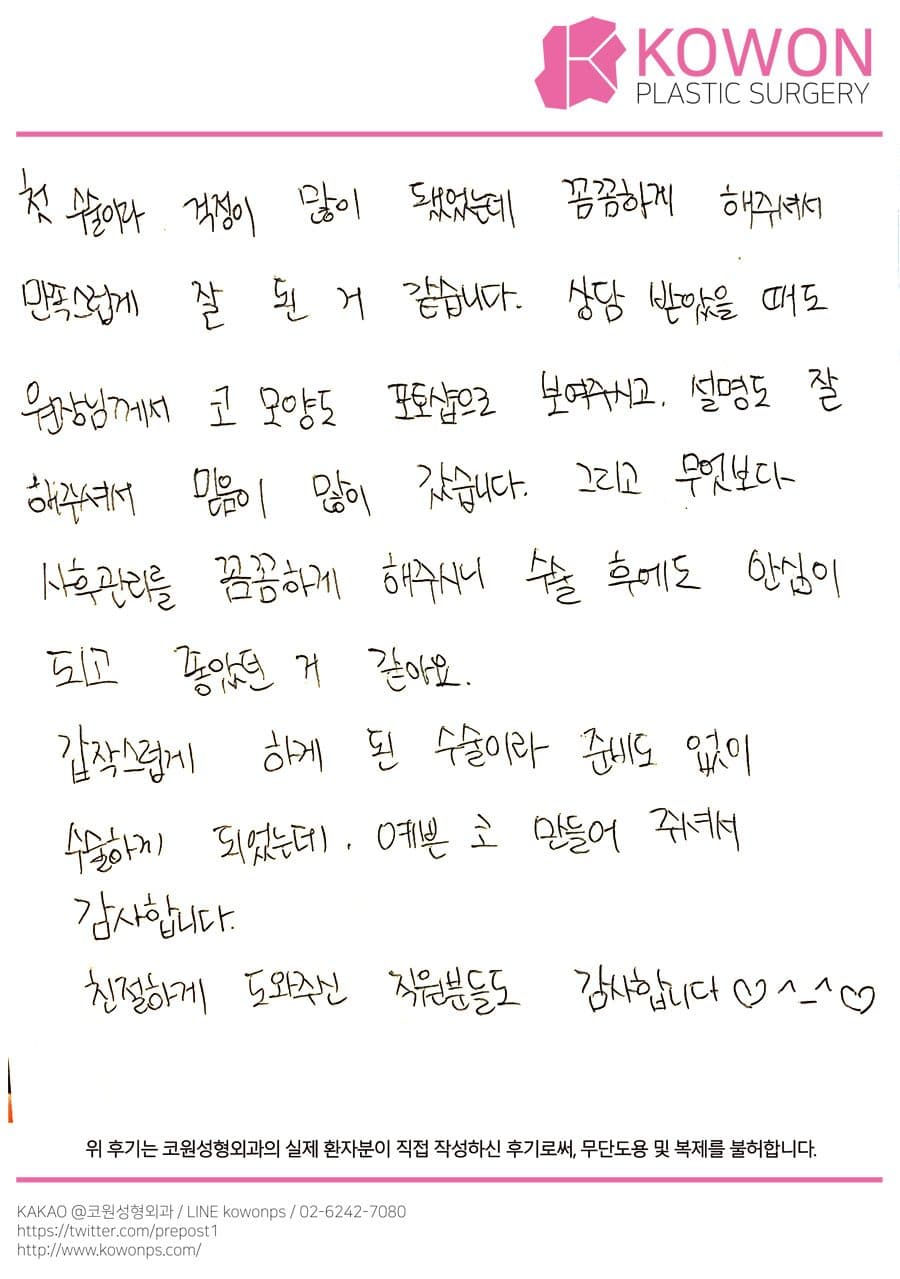 KOWON
PLASTIC SURGERY
첫 수술이라 걱정이 많이 됐었는데 꼼꼼하게 해주셔서
만족스럽게 잘 된 거 같습니다. 상담 받았을 때도
원장님께서 코 모양도 포토샵으로 보여주시고, 설명도 잘
해주셔서 믿음이 많이 갔습니다. 그리고 무엇보다
사후관리를 꼼꼼하게 해주시니 수술 후에도 안심이
되고 좋았던 거 같아요.
갑작스럽게 하게 된 수술이라 준비도 없이
수술하게 되었는데, 예쁜 코 만들어 주셔서
감사합니다.
친절하게 도와주신 직원분들도 감사합니다♡^_^♡
위 후기는 코원성형외과의 실제 환자분이 직접 작성하신 후기로써, 무단도용 및 복제를 불허합니다.
KAKAO @코원성형외과 / LINE kowonps / 02-6242-7080
https://twitter.com/prepost1
http://www.kowonps.com/